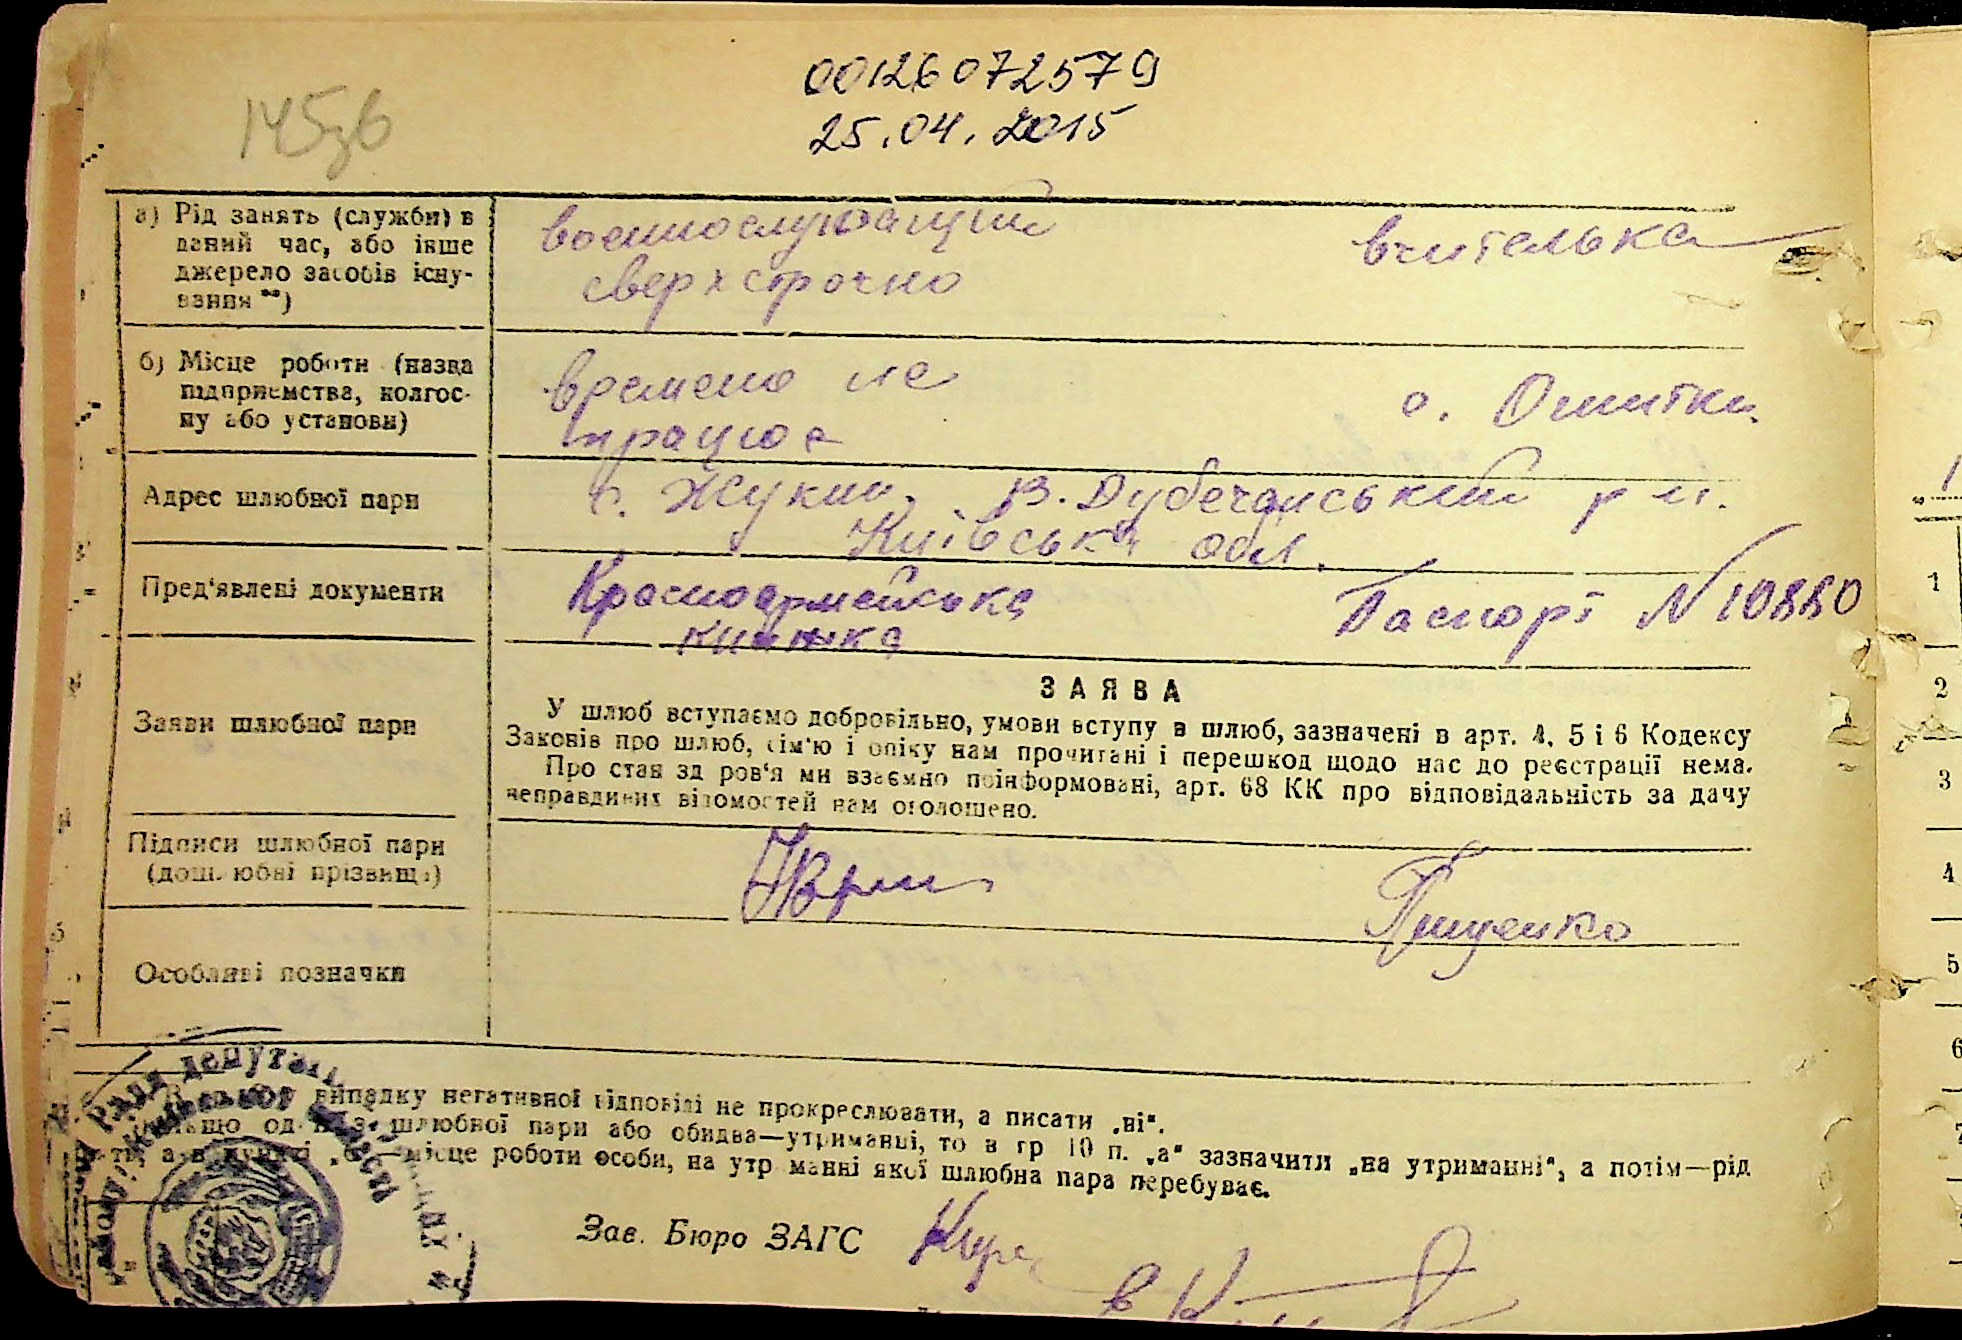 00126072579
145зв
25.04.2015
а) Рід занять (служби) в
даний час, або інше
джерело засобів існу-
вання **)
военнослужащий
сверхстрочно
вчителька
б) Місце роботи (назва
підприємства, колгос-
пу або установи)
времено не
працює
с. Ошитки.
Адрес шлюбної пари
с. Жукин, В.Дубечанський р н.
Київська обл.
Пред'явлені документи
Красноармейська
книжка
Паспорт N 10880
Заяви шлюбної пари
ЗАЯВА
У шлюб вступаємо добровільно, умови вступу в шлюб, зазначені в арт. 4, 5 і 6 Кодексу
Законів про шлюб, сім'ю і опіку нам прочитані і перешкод щодо нас до реєстрації нема.
Про стан здоров'я ми взаємно поінформовані, арт. 68 КК про відповідальність за дачу
неправдивих відомостей нам оголошено.
Підписи шлюбної пари
(дошлюбні прізвища)
Пищенко
Особливі позначки
випадку негативної відповіді не прокреслювати, а писати „ні".
Якщо один з шлюбної пари або обидва—утриманці, то в гр 10 п. „а" зазначити „на утриманні", а потім—рід
місце роботи особи, на утриманні якої шлюбна пара перебуває.
Рада депутатів
Київської
Зав. Бюро ЗАГС
1
2
3
4
5
6
7